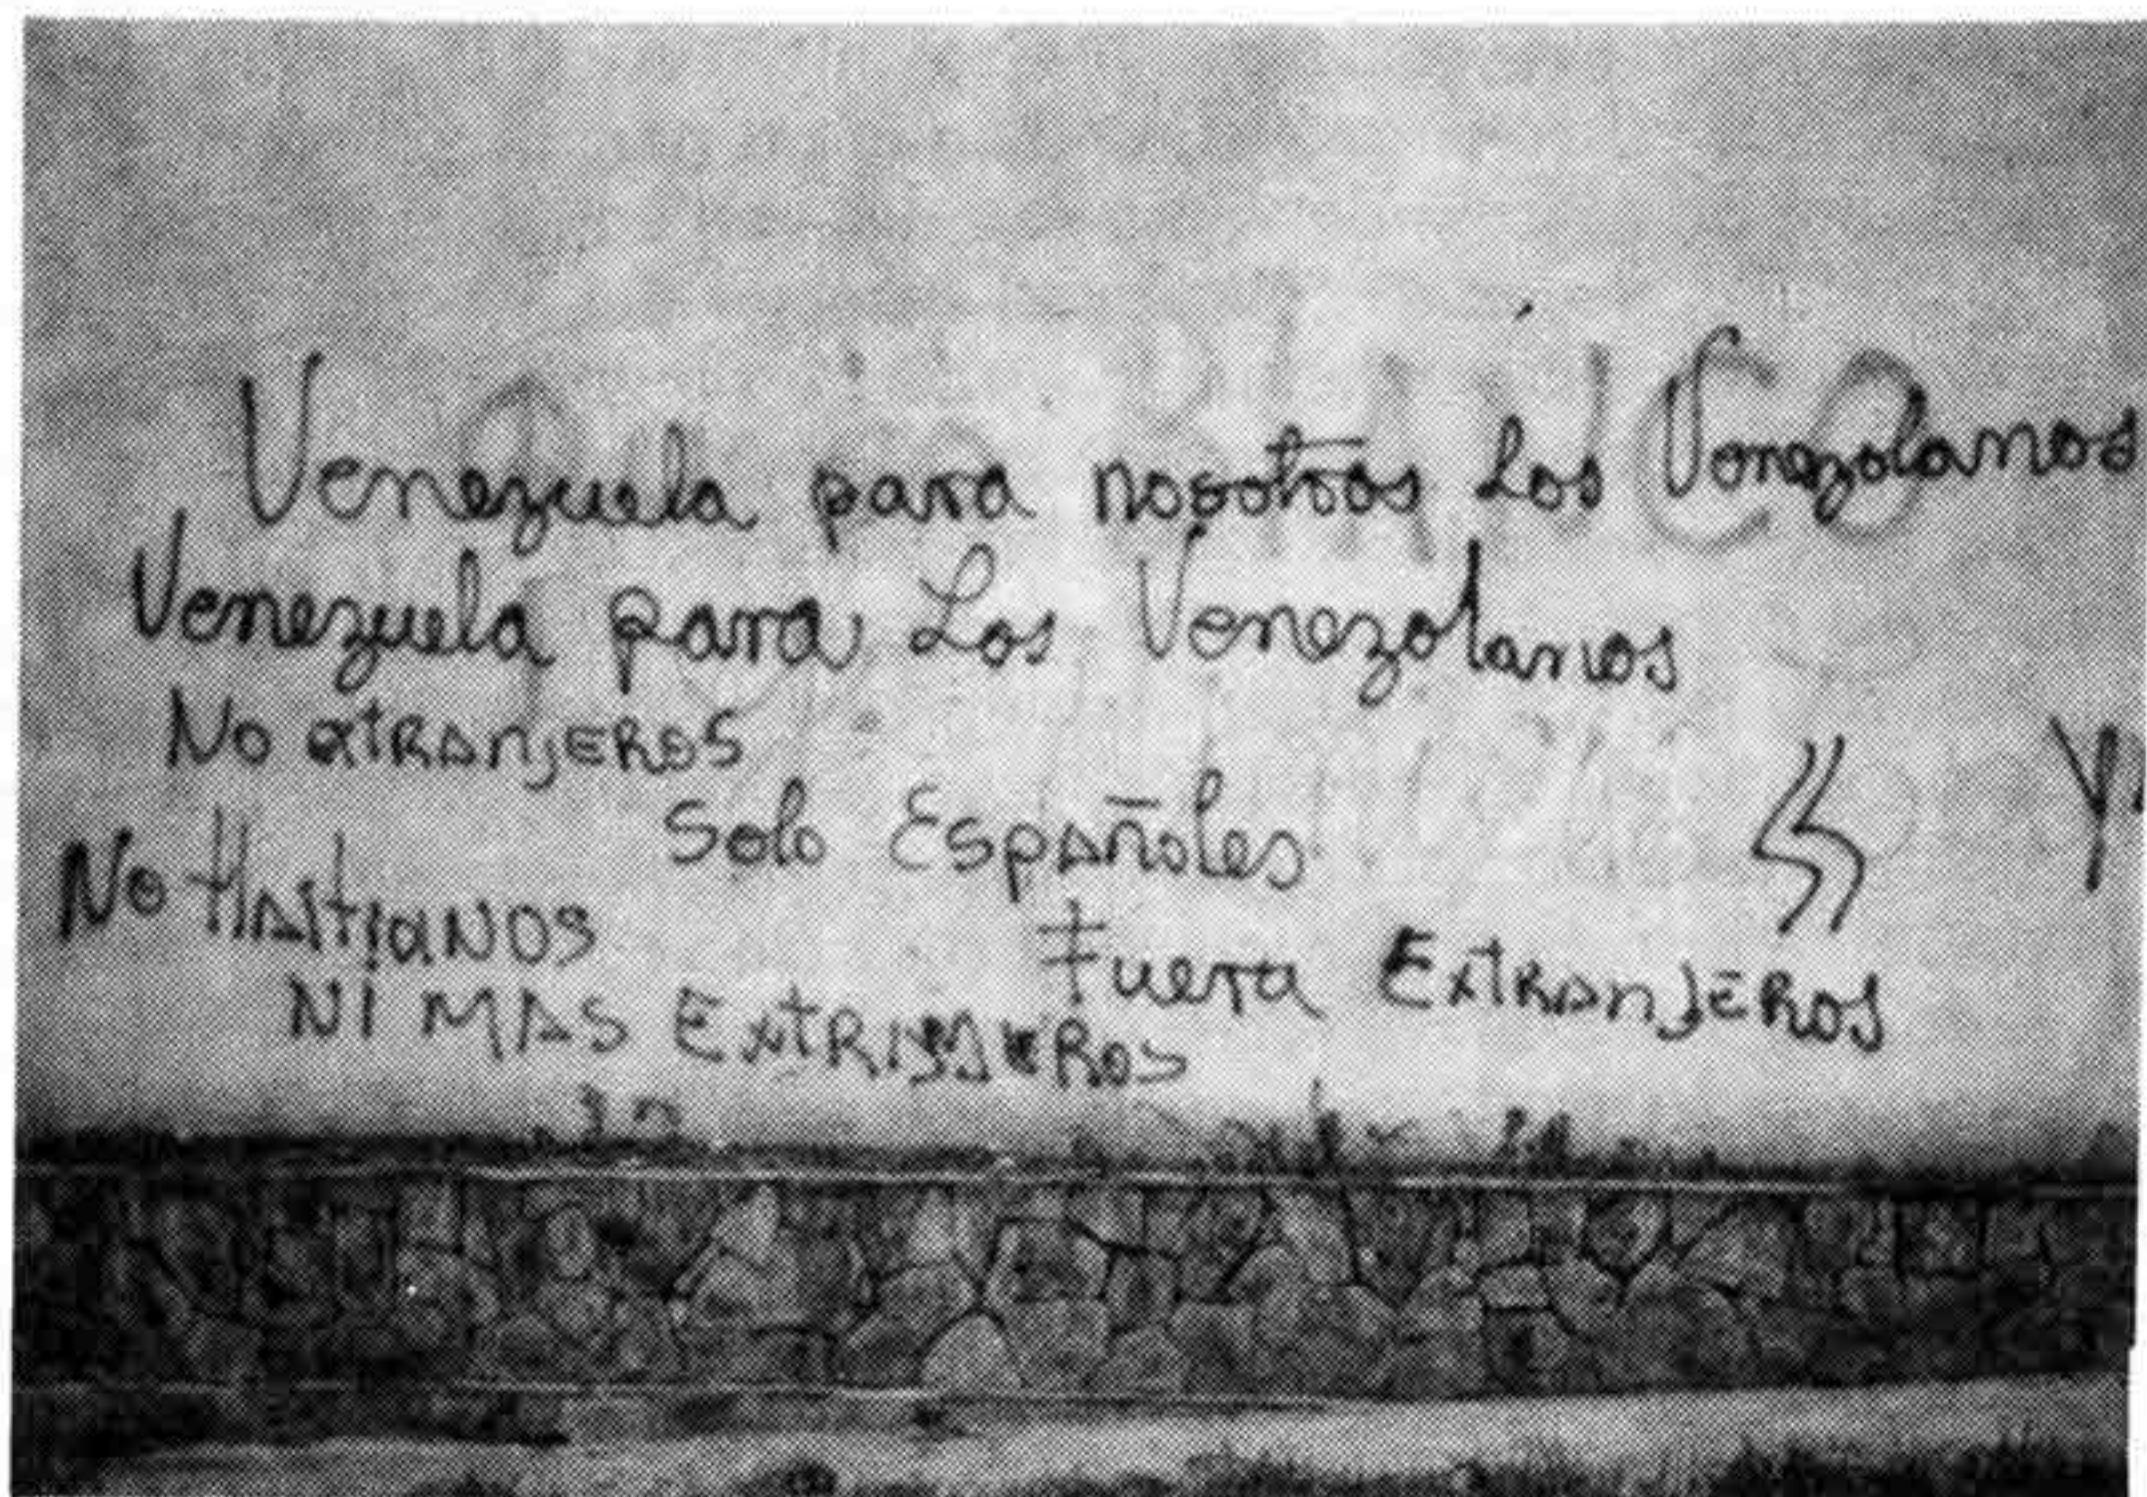 Venezuela para nosotros Los Venezolanos
Venezuela para Los Venezolanos
No extRAnjERos
Solo EspAñoles
No HAitiaNos
Fuera ExtRAnjERos
NI MAS